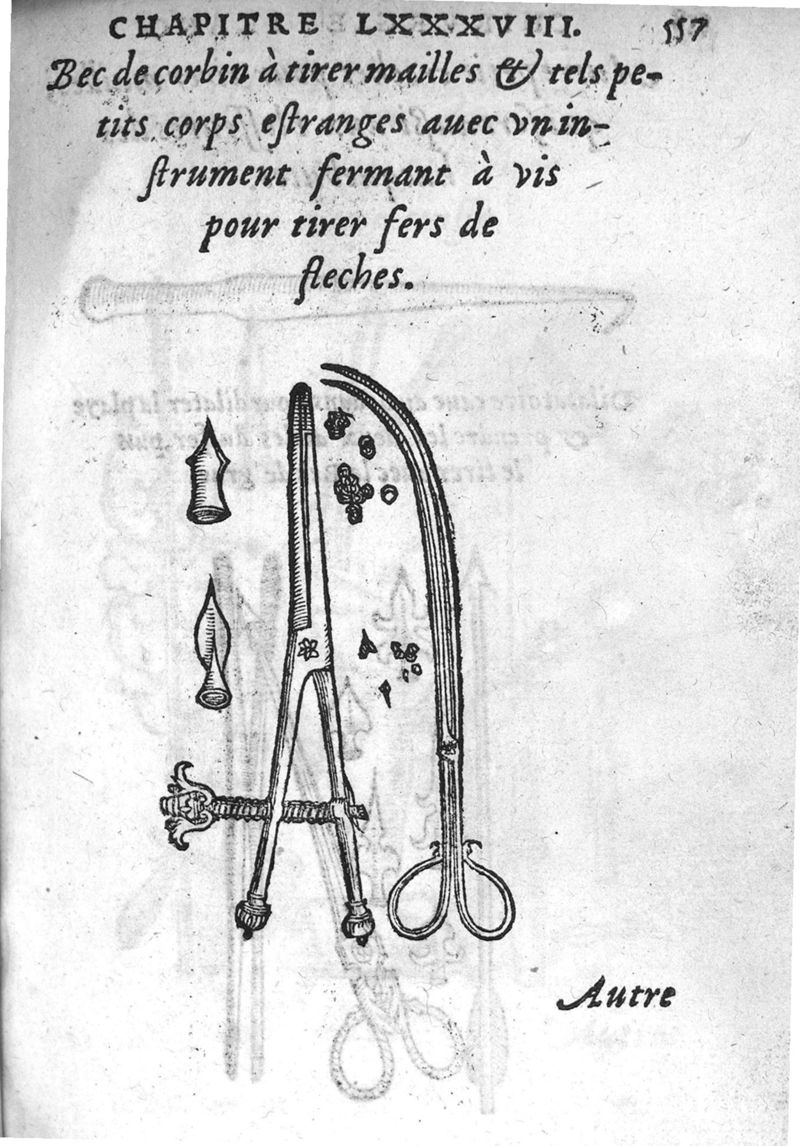 CHAPITRE LXXXVIII. 557
Bec de corbin à tirer mailles & tels pe-
tits corps eſtranges auec vn in-
ſtrument fermant à vis
pour tirer fers de
fleches.
Autre